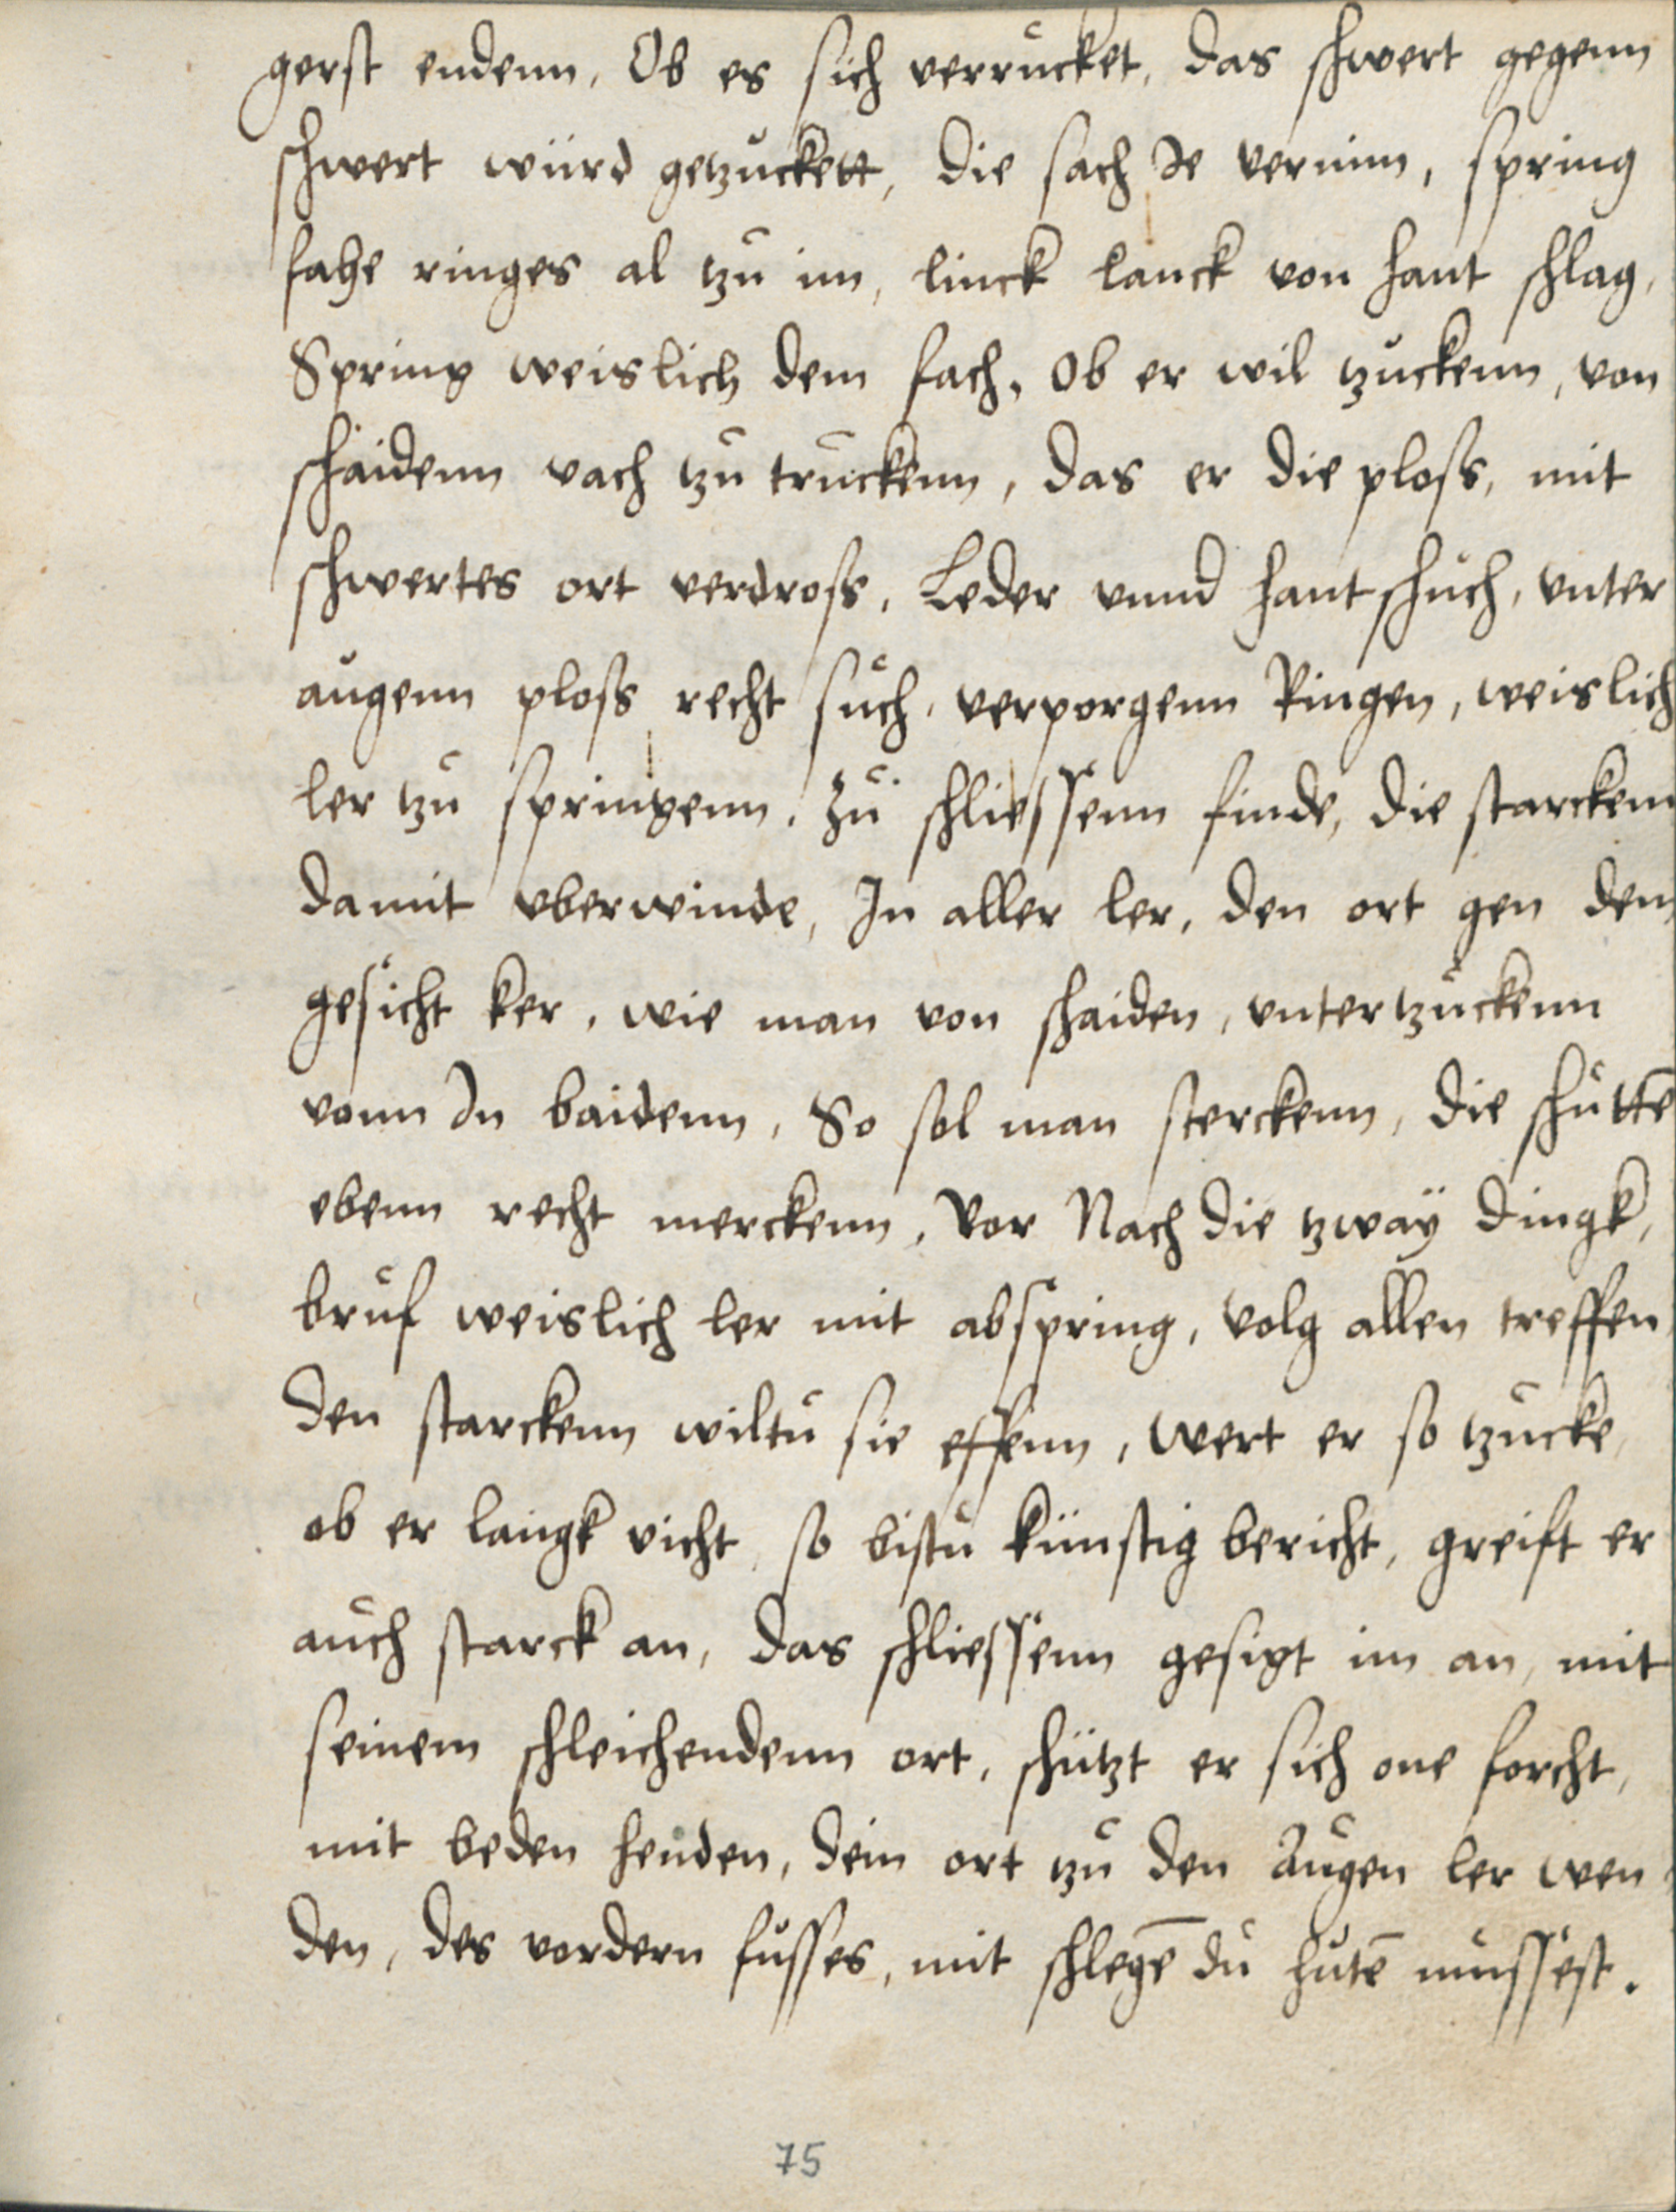 gerst endenn, Ob es sich verrucket, das schwert gegenn
schwert würd getzuckett, die sach Je vernim, spring
fahe ringes al tzu im, linck lanck von hant schlag,
Spring weislich dem fach, Ob er wil tzuckenn, von
schaidenn vach tzu truckenn, das er die ploss, mit
schwertes ort verdross, Leder vnnd hantschuch, vnter
augenn ploss recht such, verporgenn Ringen, weislich
ler tzu springenn, Zu schliessenn finde, die starckenn
damit vberwinde, In aller ler, den ort gen dem
gesicht ker, wie man von schaiden, vntertzuckenn
vonn In baidenn, So sol man sterckenn, die schuttē
ebenn recht merckenn, Vor Nach die tzwaÿ dingk,
bruf weislich ler mit abspring, Volg allen treffen,
den starckenn wiltu sie effenn, Wert er so tzucke,
ob er langk vicht, so bistu künstig bericht, greift er
auch starck an, das schliessenn gesigt im an, mit
seinem schleichendenn ort, schützt er sich one forcht,
mit beden henden, dein ort tzu den Augen ler wen
den, des vordern fusses, mit schlegē du hutē mussest.
75